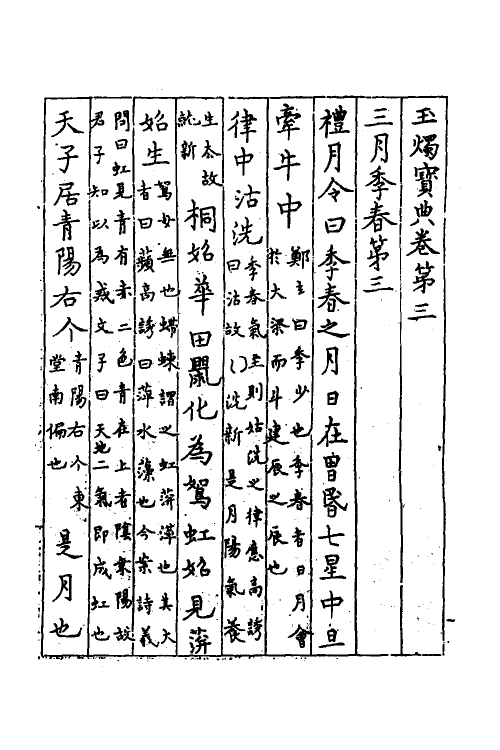 玉燭寶典卷第三
三月季春第三
禮月令曰季春之月日在胃昏七星中旦
牽牛中
鄭玄曰季少也季春者日月會
於大梁而斗建辰之辰也
律中沽洗
季春氣至則姑洗之律應高誘
曰沽故洗新是月陽氣養
生去故
就新
桐始華田鼠化為鴽虹始見蓱
始生
鴽母無也螮蝀謂之虹蓱萍也其大
者曰蘋高誘曰萍水藻也今案詩義
問曰虹見青有赤二色青在上者陰乘陽故
君子知以為戒文子曰天地二氣即成虹也
天子居青陽右个
青陽右个東
堂南偏也
是月也